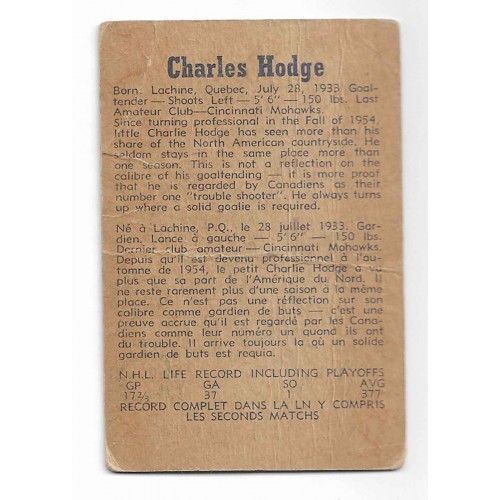 Charles Hodge
Born: Lachine, Quebec, July 28, 1933 Goal-
tender — Shoots Left — 5' 6" — 150 lbs. Last
Amateur Club — Cincinnati Mohawks.
Since turning professional in the Fall of 1954,
little Charlie Hodge has seen more than his
share of the North American countryside. He
seldom stays in the same place more than
one season. This is not a reflection on the
calibre of his goaltending — it is more proof
that he is regarded by Canadiens as their
number one "trouble shooter". He always turns
up where a solid goalie is required.
Né à Lachine, P.Q., le 28 juillet 1933. Gar-
dien. Lance à gauche — 5' 6" — 150 lbs.
Dernier club amateur — Cincinnati Mohawks.
Depuis qu'il est devenu professionnel à l'au-
tomne de 1954, le petit Charlie Hodge a vu
plus que sa part de l'Amérique du Nord. Il
ne reste rarement plus d'une saison à la même
place. Ce n'est pas une réflection sur son
calibre comme gardien de buts — c'est une
preuve accrue qu'il est regardé par les Cana-
diens comme leur numéro un quand ils ont
du trouble. Il arrive toujours là où un solide
gardien de buts est requia.
N.H.L. LIFE RECORD INCLUDING PLAYOFFS
GP GA SO AVG
17⅔ 37 1 377
RECORD COMPLET DANS LA LN Y COMPRIS
LES SECONDS MATCHS